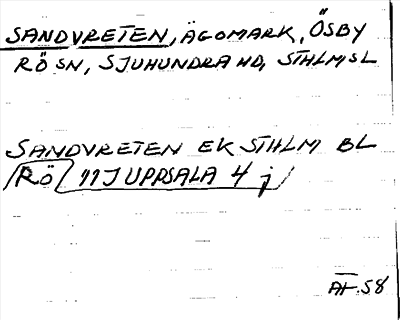 SANDVRETEN, ÄGOMARK, ÖSBY
RÖ SN, SJUHUNDRA HD, STHLMSL
SANDVRETEN EK STHLM BL
RÖ 11J UPPSALA 4 j
AF. 58